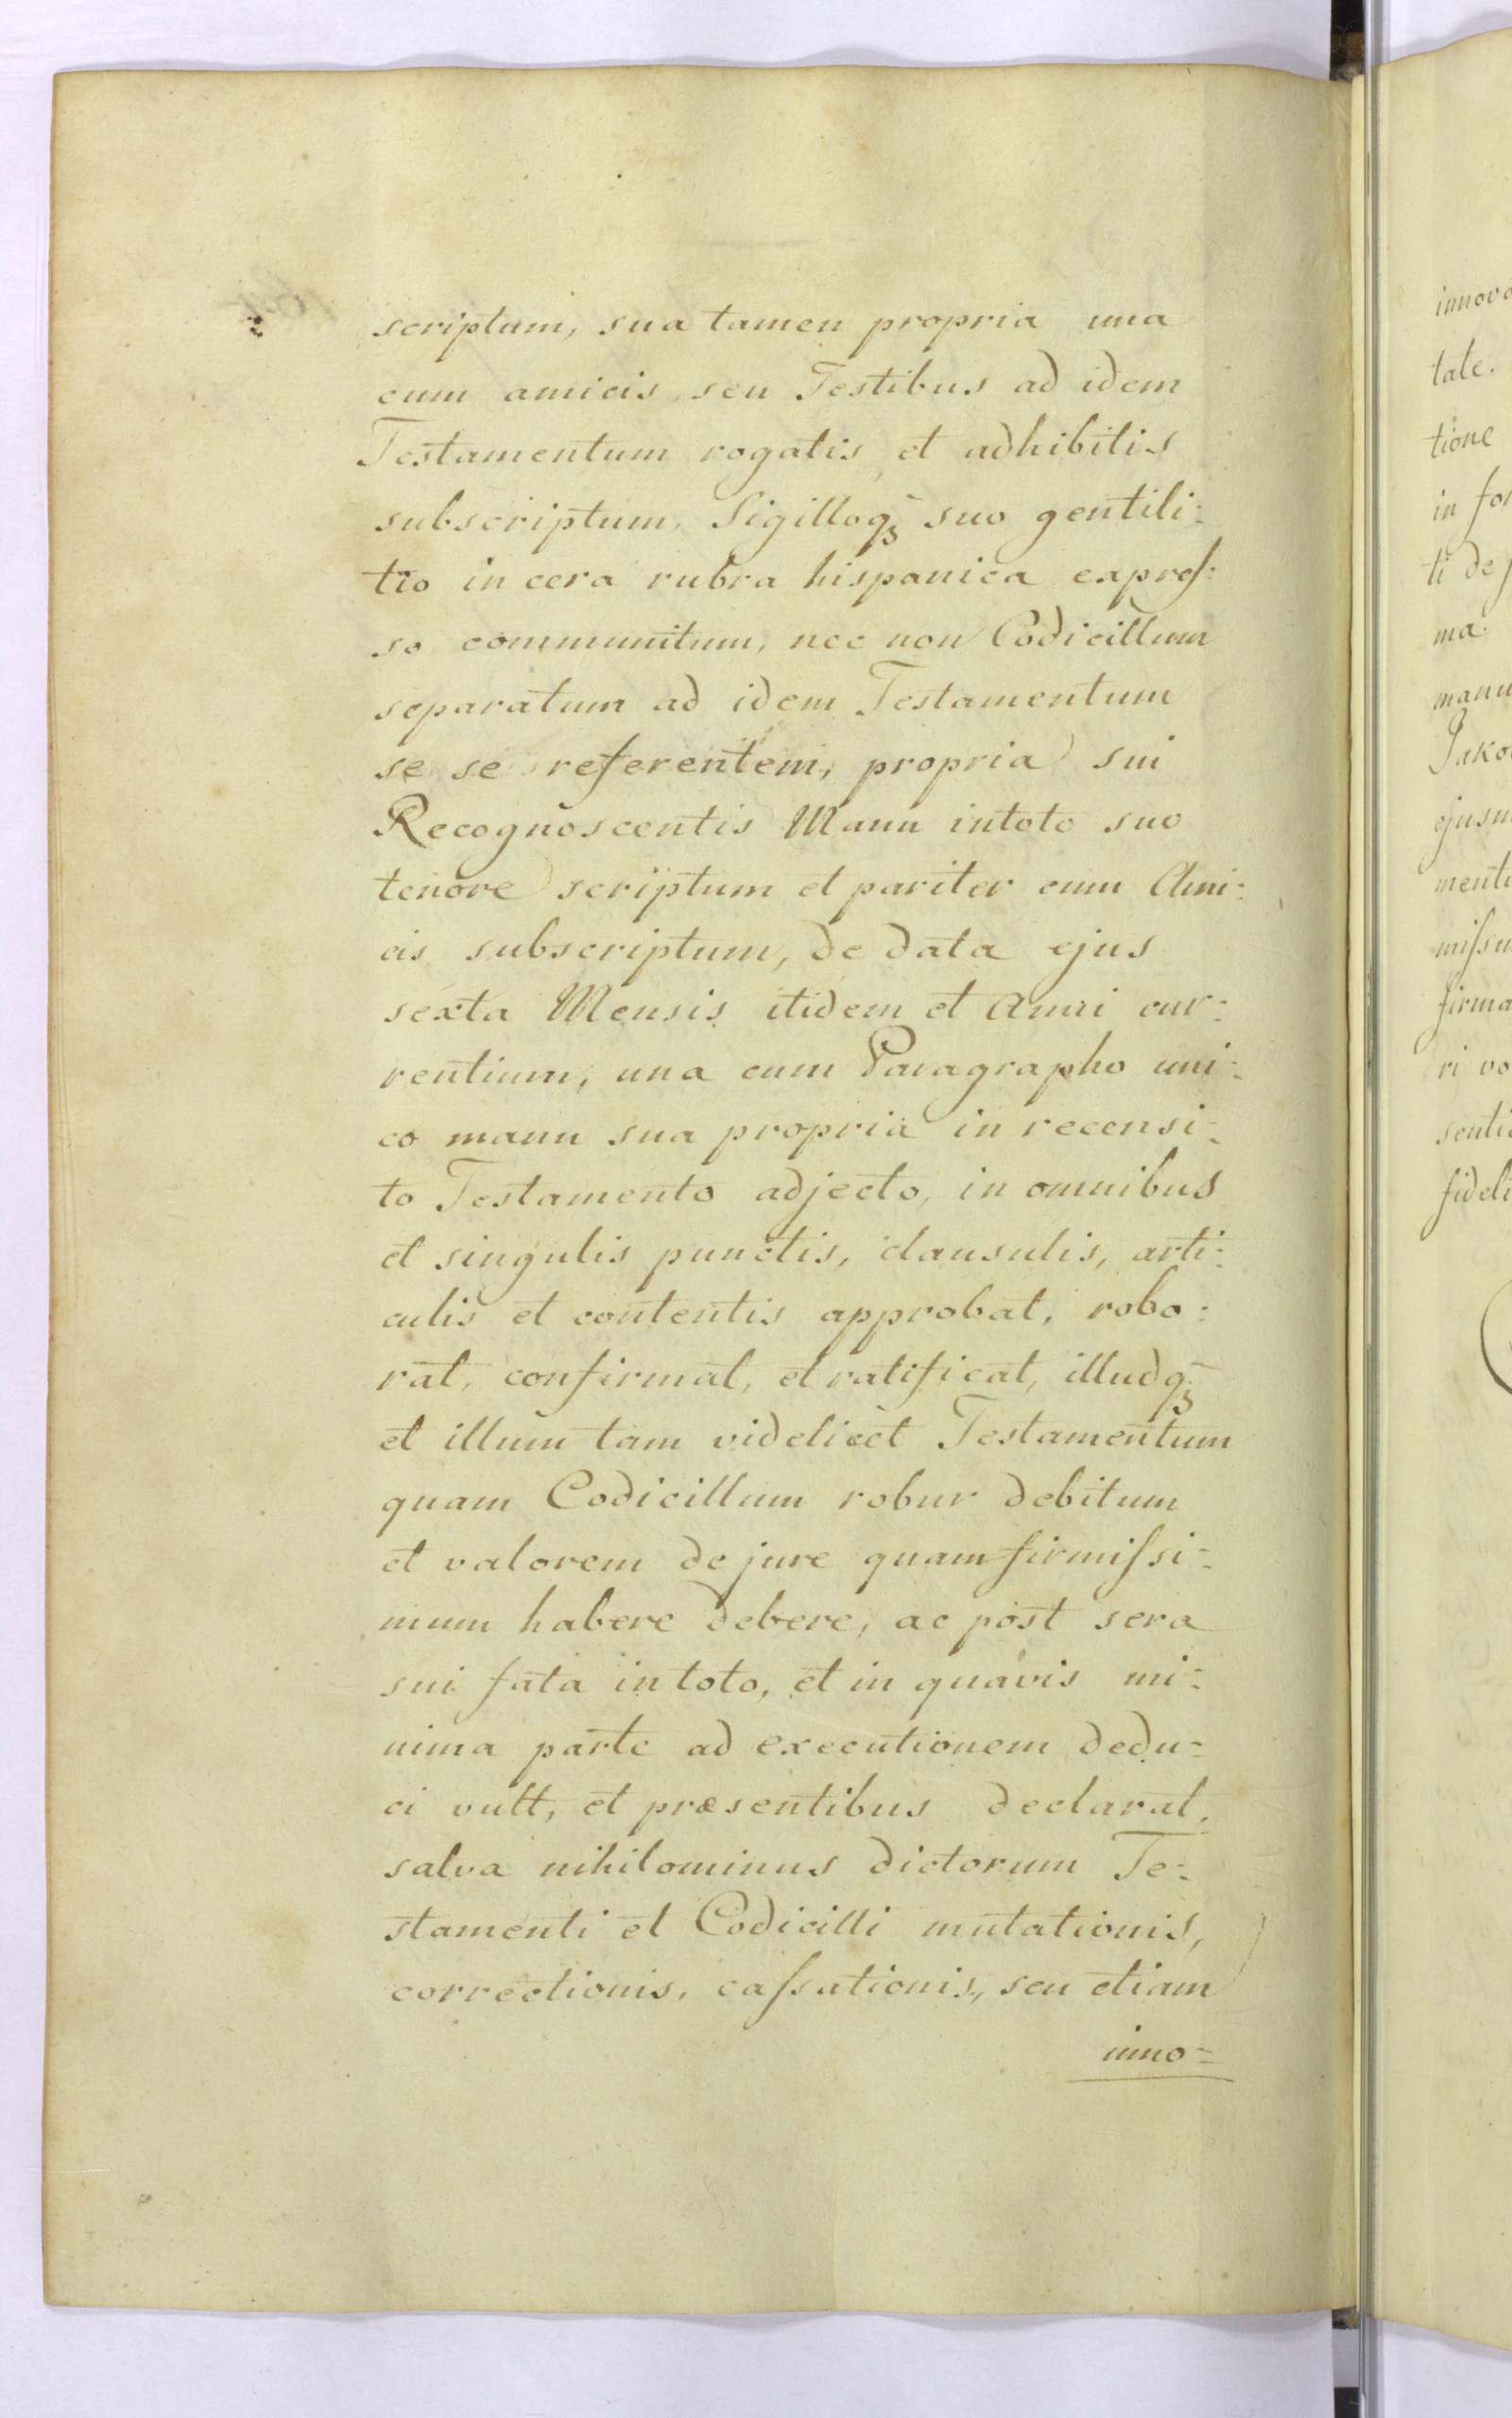 scriptum, sua tamen propria una
cum amicis seu Testibus ad idem
Testamentum rogatis et adhibitis
subscriptum, Sigilloqꝫ suo gentili:
tio in cera rubra hispanica expreſ:
so communitum, nec non Codicillum
separatum ad idem Testamentum
se se referentem, propria sui
Recognoscentis Manu intoto suo
tenore scriptum et pariter cum Ami:
cis subscriptum, de data ejus
sexta Mensis itidem et Anni cur:
rentium, una cum Paragrapho uni:
co manu sua propria in recensi:
to Testamento adjecto, in omnibus
et singulis punctis, clausulis, arti:
culis et contentis approbat, robo:
rat, confirmat, et ratificat, illudqꝫ
et illum tam videlicet Testamentum
quam Codicillum robur debitum
et valorem de jure quam firmiſsi:
mum habere debere, ac post sera
sui fata in toto, et in quavis mi:
nima parte ad executionem dedu=
ci vult, et præsentibus declarat,
salva nihilominus dictorum Te:
stamenti et Codicilli mutationis,
correctionis, caſsationis, seu etiam
inno=
innovo
tate.
tione
in for
ti de j
ma.
manu
Jako
ejusm
mente
miſsu
firma
ri vo
senti
fideli